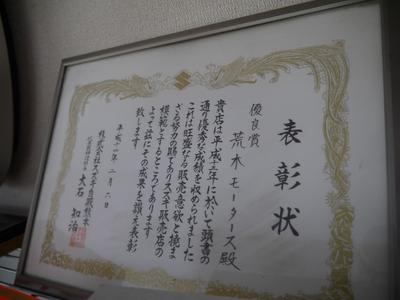 表彰状
優良賞
荒木モータース殿
貴店は平成十三年に於いて頭書の
通り優秀な成績を収められました
これは旺盛なる販売意欲と撓ま
ざる努力の賜でありスズキ販売店の
模範とするところであります
よって茲にその成果を讃え表彰
致します
平成十四年二月六日
株式会社スズキ自販熊本
代表取締役社長 大石 知治